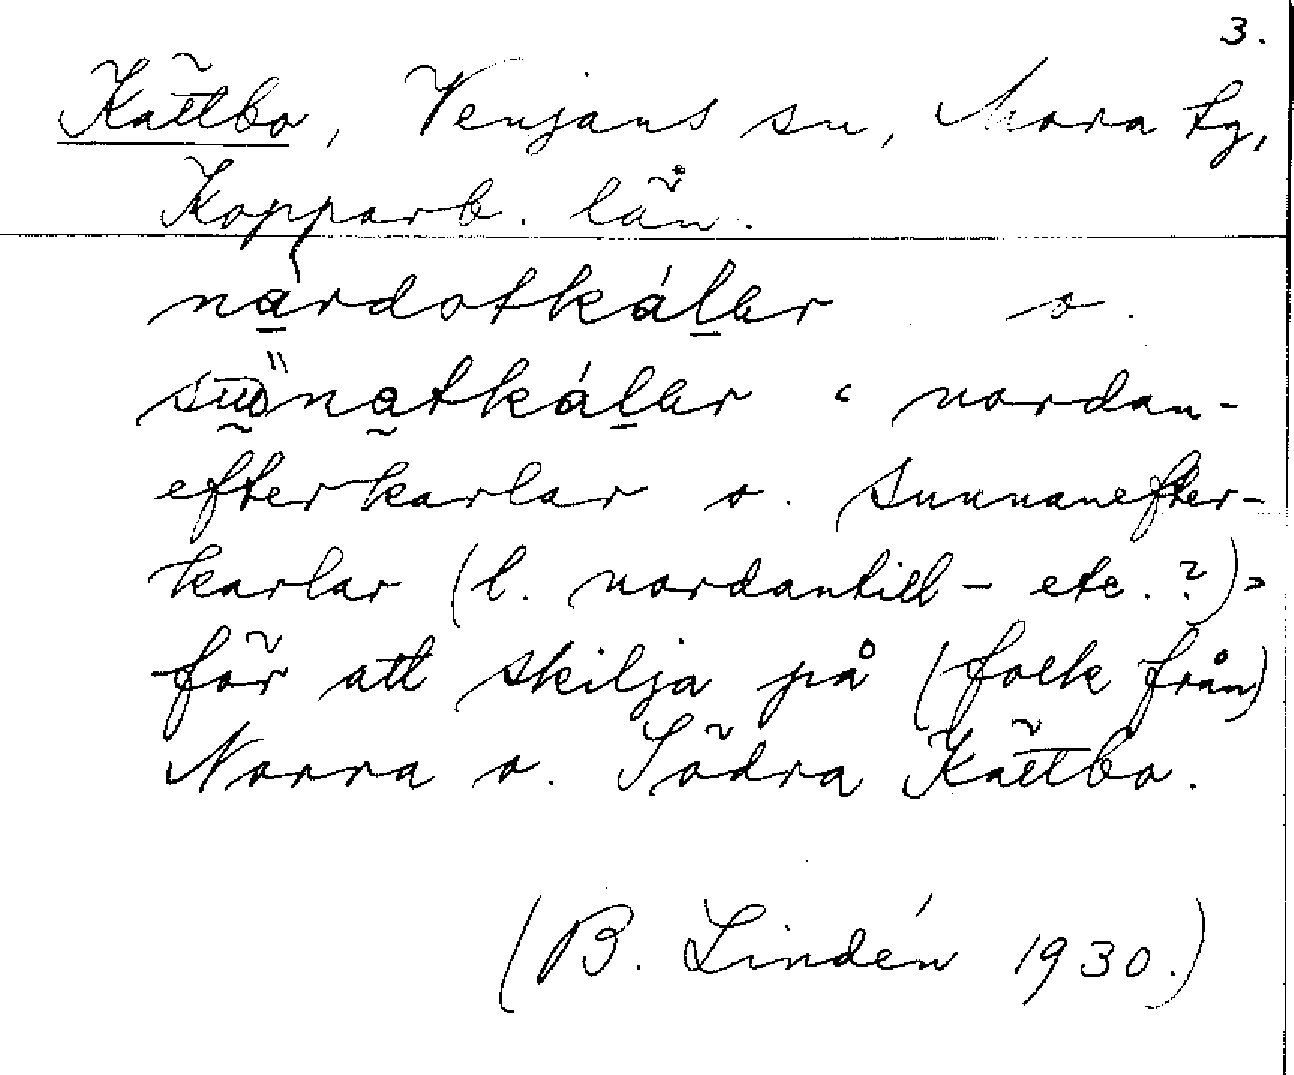 3.
Kättbo, Venjans sn, Mora tg,
Kopparb. län.
nardotkálar o.
sunnatkálar "nordan-
efterkarlar o. sunnanefter-
karlar (l. nordantill- etc.?)"
för att skilja på (folk från)
Norra o. Södra Kättbo.
(B. Lindén 1930.)